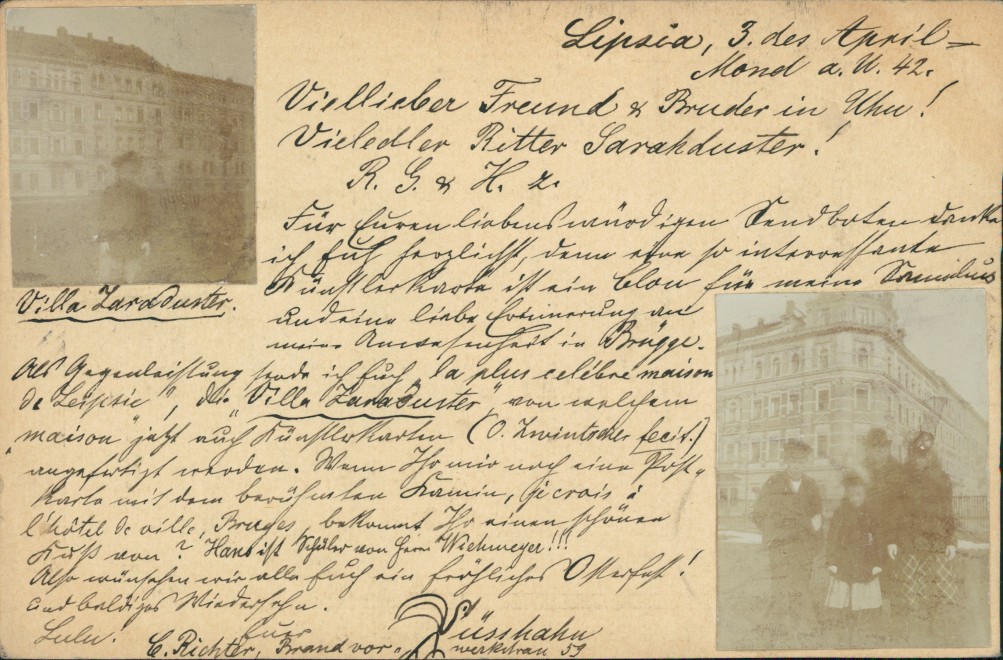 Lipsia, 3. des April-
Mond a. U. 42.
Viellieber Freund & Bruder in Uhu!
Vieledler Ritter Sarahduster!
R. G. & H. z.
Für Euren liebenswürdigen Sendboten danke
ich Euch herzlichst, denn eine so interessante
Künstlerkarte ist ein Clou für meine
und eine liebe Erinnerung an
meine Anwesenheit in Brügge.
Villa Zaraduster.
Als Gegenleistung sende ich Euch „la plus celébre maison
de Leipsic", die „Villa Zaraduster" von welchem
„maison" jetzt auch Künstlerkarten (O. Zwintscher fecit.)
angefertigt werden. Wenn Ihr mir noch eine Post-
karte mit dem berühmten Kamin, je crois à
l'hôtel de ville, Bruges, bekommt Ihr einen schönen
Kuß von ? Hans ist Schüler von Herrn Wiehmeyer!!!
Also wünschen wir alle Euch ein fröhliches Osterfest!
und baldiges Wiedersehn.
Lulu.
Euer
Süsshahn
C. Richter, Brandvor-
werkstrau 59